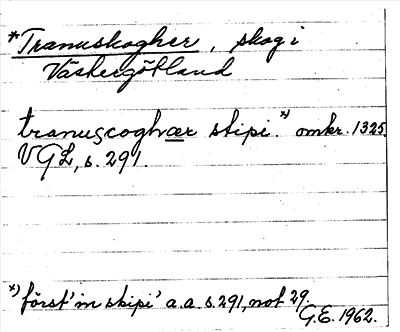 *Tranuskogher, skog i
Västergötland
tranuscoghær skipi.*) omkr. 1325.
VGL, s. 291.
*) först 'in skipi' a.a. s. 291, not 29.
G.E. 1962.